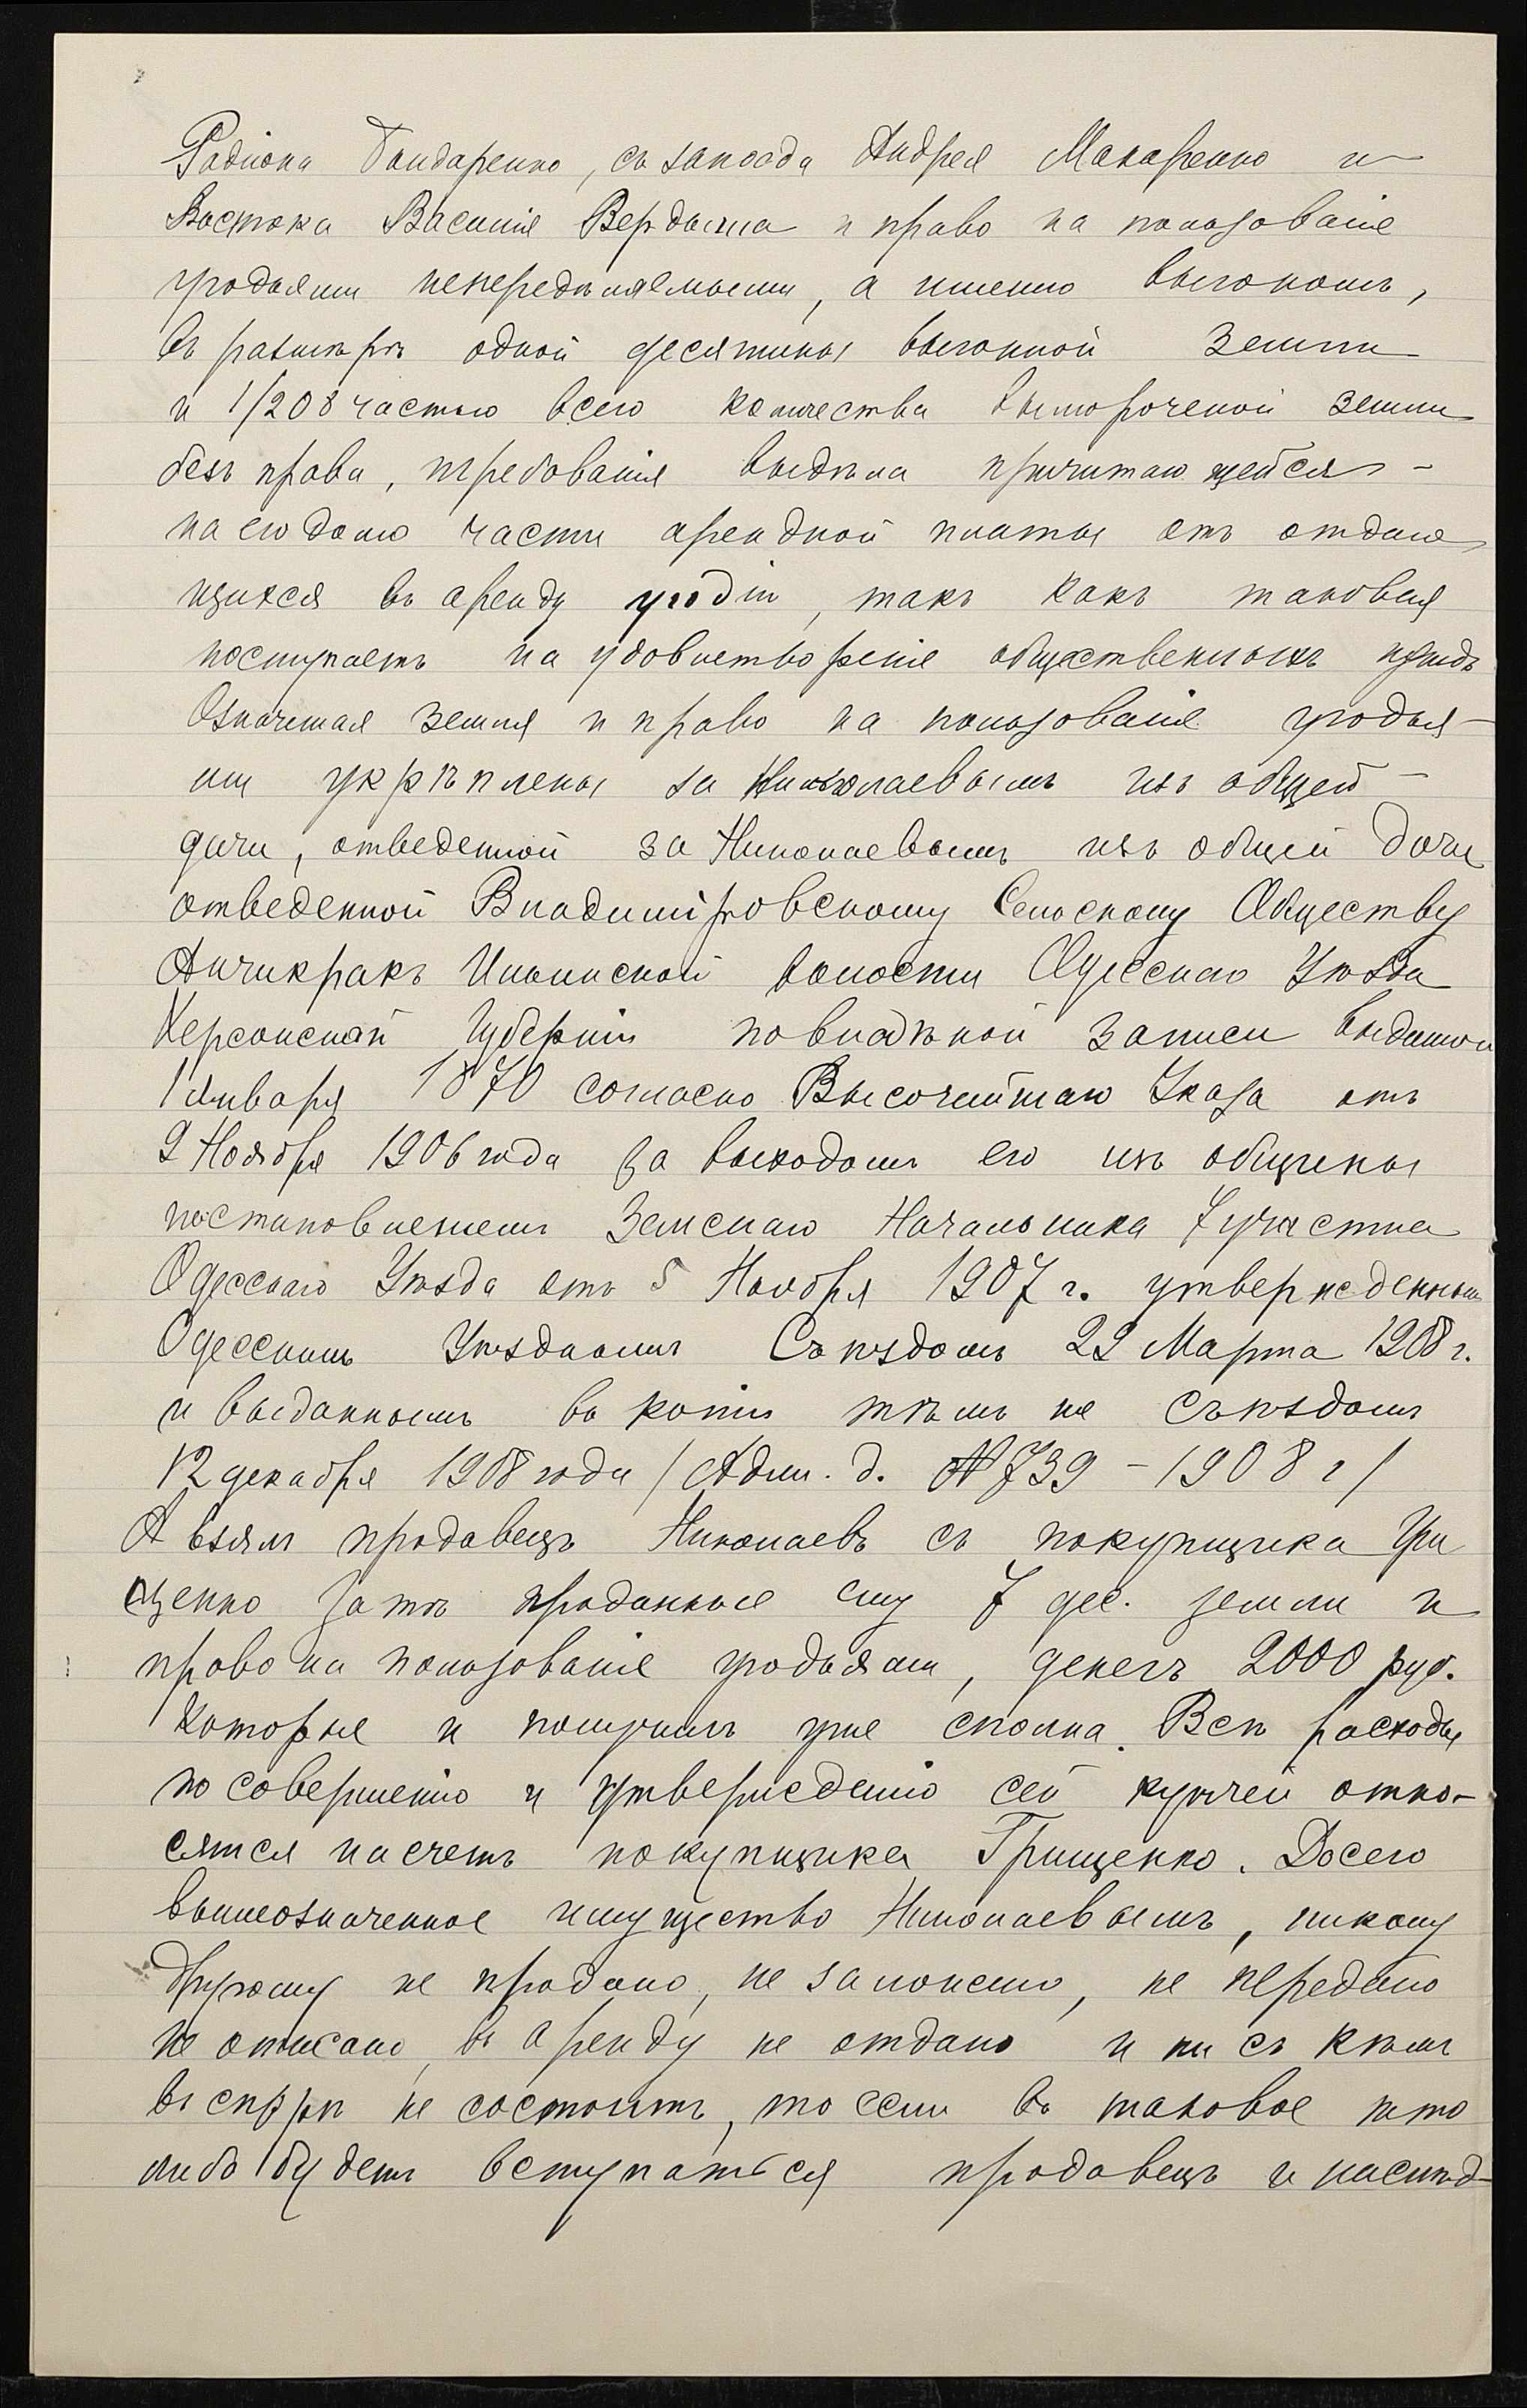 Радіона Бондаренко, съ запода Андрея Макаренко и
Востока Василія Вердыша и право на пользованіе
угодьями непередѣляемыми, а именно выгономъ,
въ размѣрѣ одной десятины выгонной земли
и 1/208 частью всего количества выморочной земли
безъ права, требованія выдѣла причитающейся-
на его долю части арендной платы отъ отдаю
щихся въ аренду угодій, такъ какъ таковая
поступаетъ на удовлетвореніе общественныхъ нуждъ
Означеная земля и право на пользованіе угодья-
ми укрѣплены за Николаевымъ изъ общей-
дачи, отведенной за Николаевымъ изъ общей дачи
отведенной Владимировскому Сельскому Обществу
Анчикракъ Ильинской волости Одесскаго Уѣзда
Херсонской Губерніи по владѣнной записи выданной
1 января 1870 согласно Высочайшаго Указа отъ
9 Ноября 1906 года за выходомъ его изъ общины
постановленіемъ Земскаго Начальника 7 участка
Одесскаго Уѣзда отъ 5 Ноября 1907 г. утвержденнымъ
Одесскимъ Уѣзднымъ Съѣздомъ 22 Марта 1908 г.
и выданнымъ въ копіи тѣмъ же Съѣздомъ
12 декабря 1908 года /Адм. д. № 739-1908 г/
А взялъ продавецъ Николаевъ съ покупщика Гри
щенко за тѣ проданные ему 7 дес. земли и
право на пользованіе угодьями, денегъ 2000 руб.
Которые и получилъ уже сполна. Всѣ расходы
по совершенію и утвержденію сей купчей отно-
сятся на счетъ покупщика Грищенко. До сего
вышеозначенное имущество Николаевымъ, никому
другому не продано, не заложено, не передано
не описано, въ аренду не отдано и ни съ кѣмъ
въ спорѣ не состоитъ, то если въ таковое кто
либо будетъ вступаться продавецъ и наслѣд-